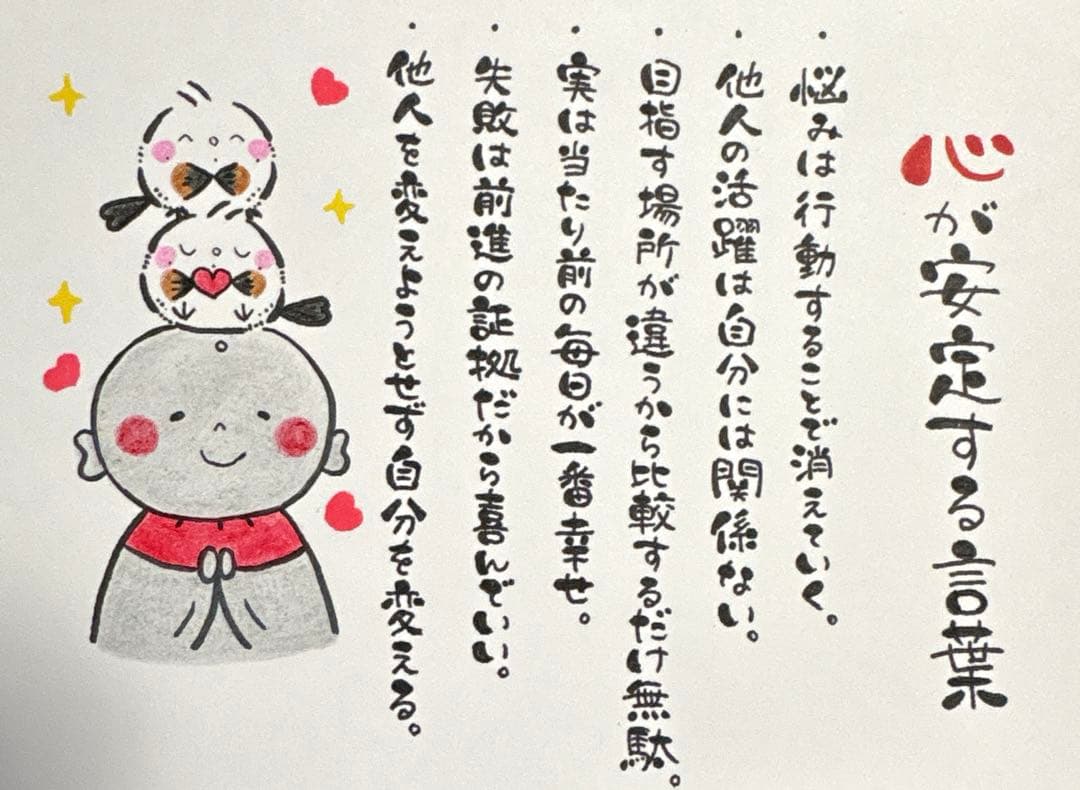 心が安定する言葉
・悩みは行動することで消えていく。
・他人の活躍は自分には関係ない。
・目指す場所が違うから比較するだけ無駄。
・実は当たり前の毎日が一番幸せ。
・失敗は前進の証拠だから喜んでいい。
・他人を変えようとせず自分を変える。